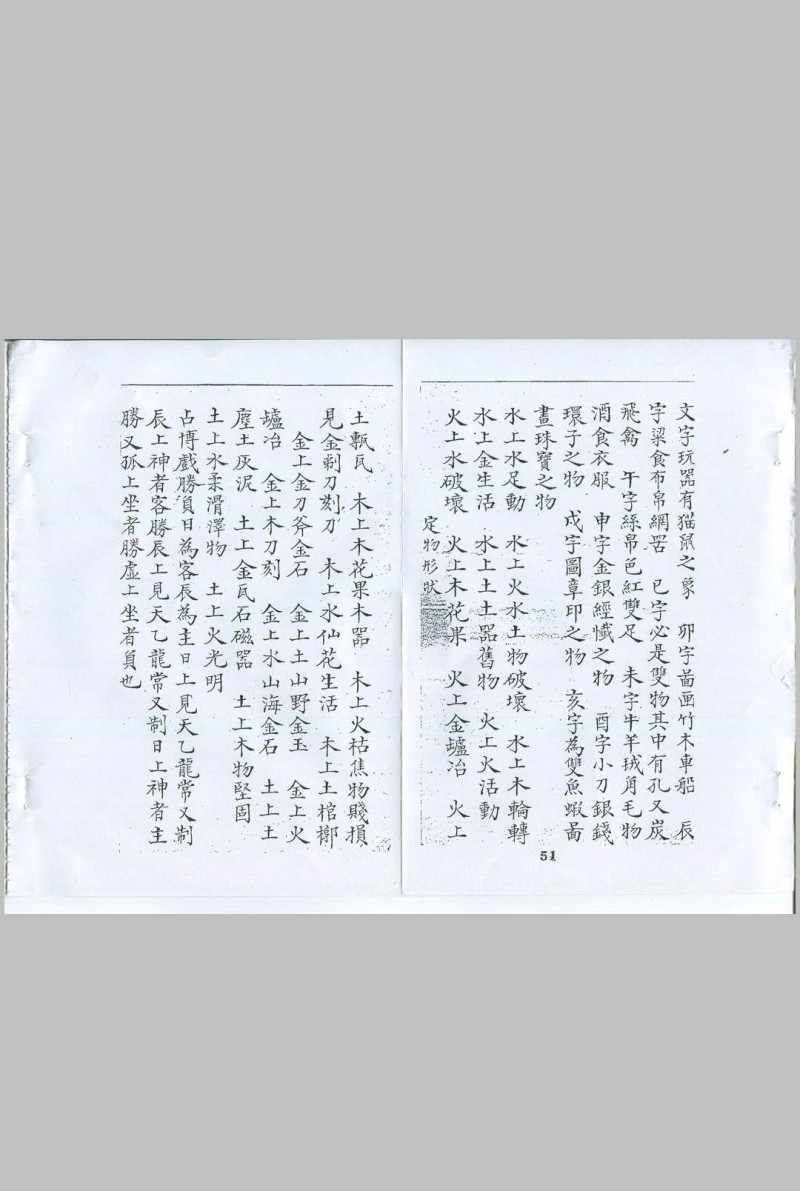 文字玩器有猫鼠之象　卯字啚画竹木車船　辰
字粱食布帛網罟　巳字必是雙物其中有孔又炭
飛禽　午字絲帛色紅雙足　未字牛羊㧤角毛物
酒食衣服　申字金銀經懺之物　酉字小刀銀錢
環子之物　戍字圖章印之物　亥字為雙魚蝦啚
畫珠寶之物
水上水足動　水上火水土物破壞　水上木輪轉
水上金生活　水上土土器舊物　火上火活動
火上水破壞　火上木花果　火上金爐冶　火上
定物形狀
51
土甎瓦　木上木花果木器　木上火枯焦物賤損
見金剃刀刻刀　木上水仙花生活　木上土棺槨
金上金刀斧金石　金上土山野金玉　金上火
爐冶　金上木刀刻　金上水山海金石　土上土
塵土灰泥　土上金瓦石磁器　土上木物堅固
土上水柔滑澤物　土上火光明
占博戲勝負日為客辰為主日上見天乙龍常又制
辰上神者客勝辰上見天乙龍常又制日上神者主
勝又孤上坐者勝虛上坐者負也